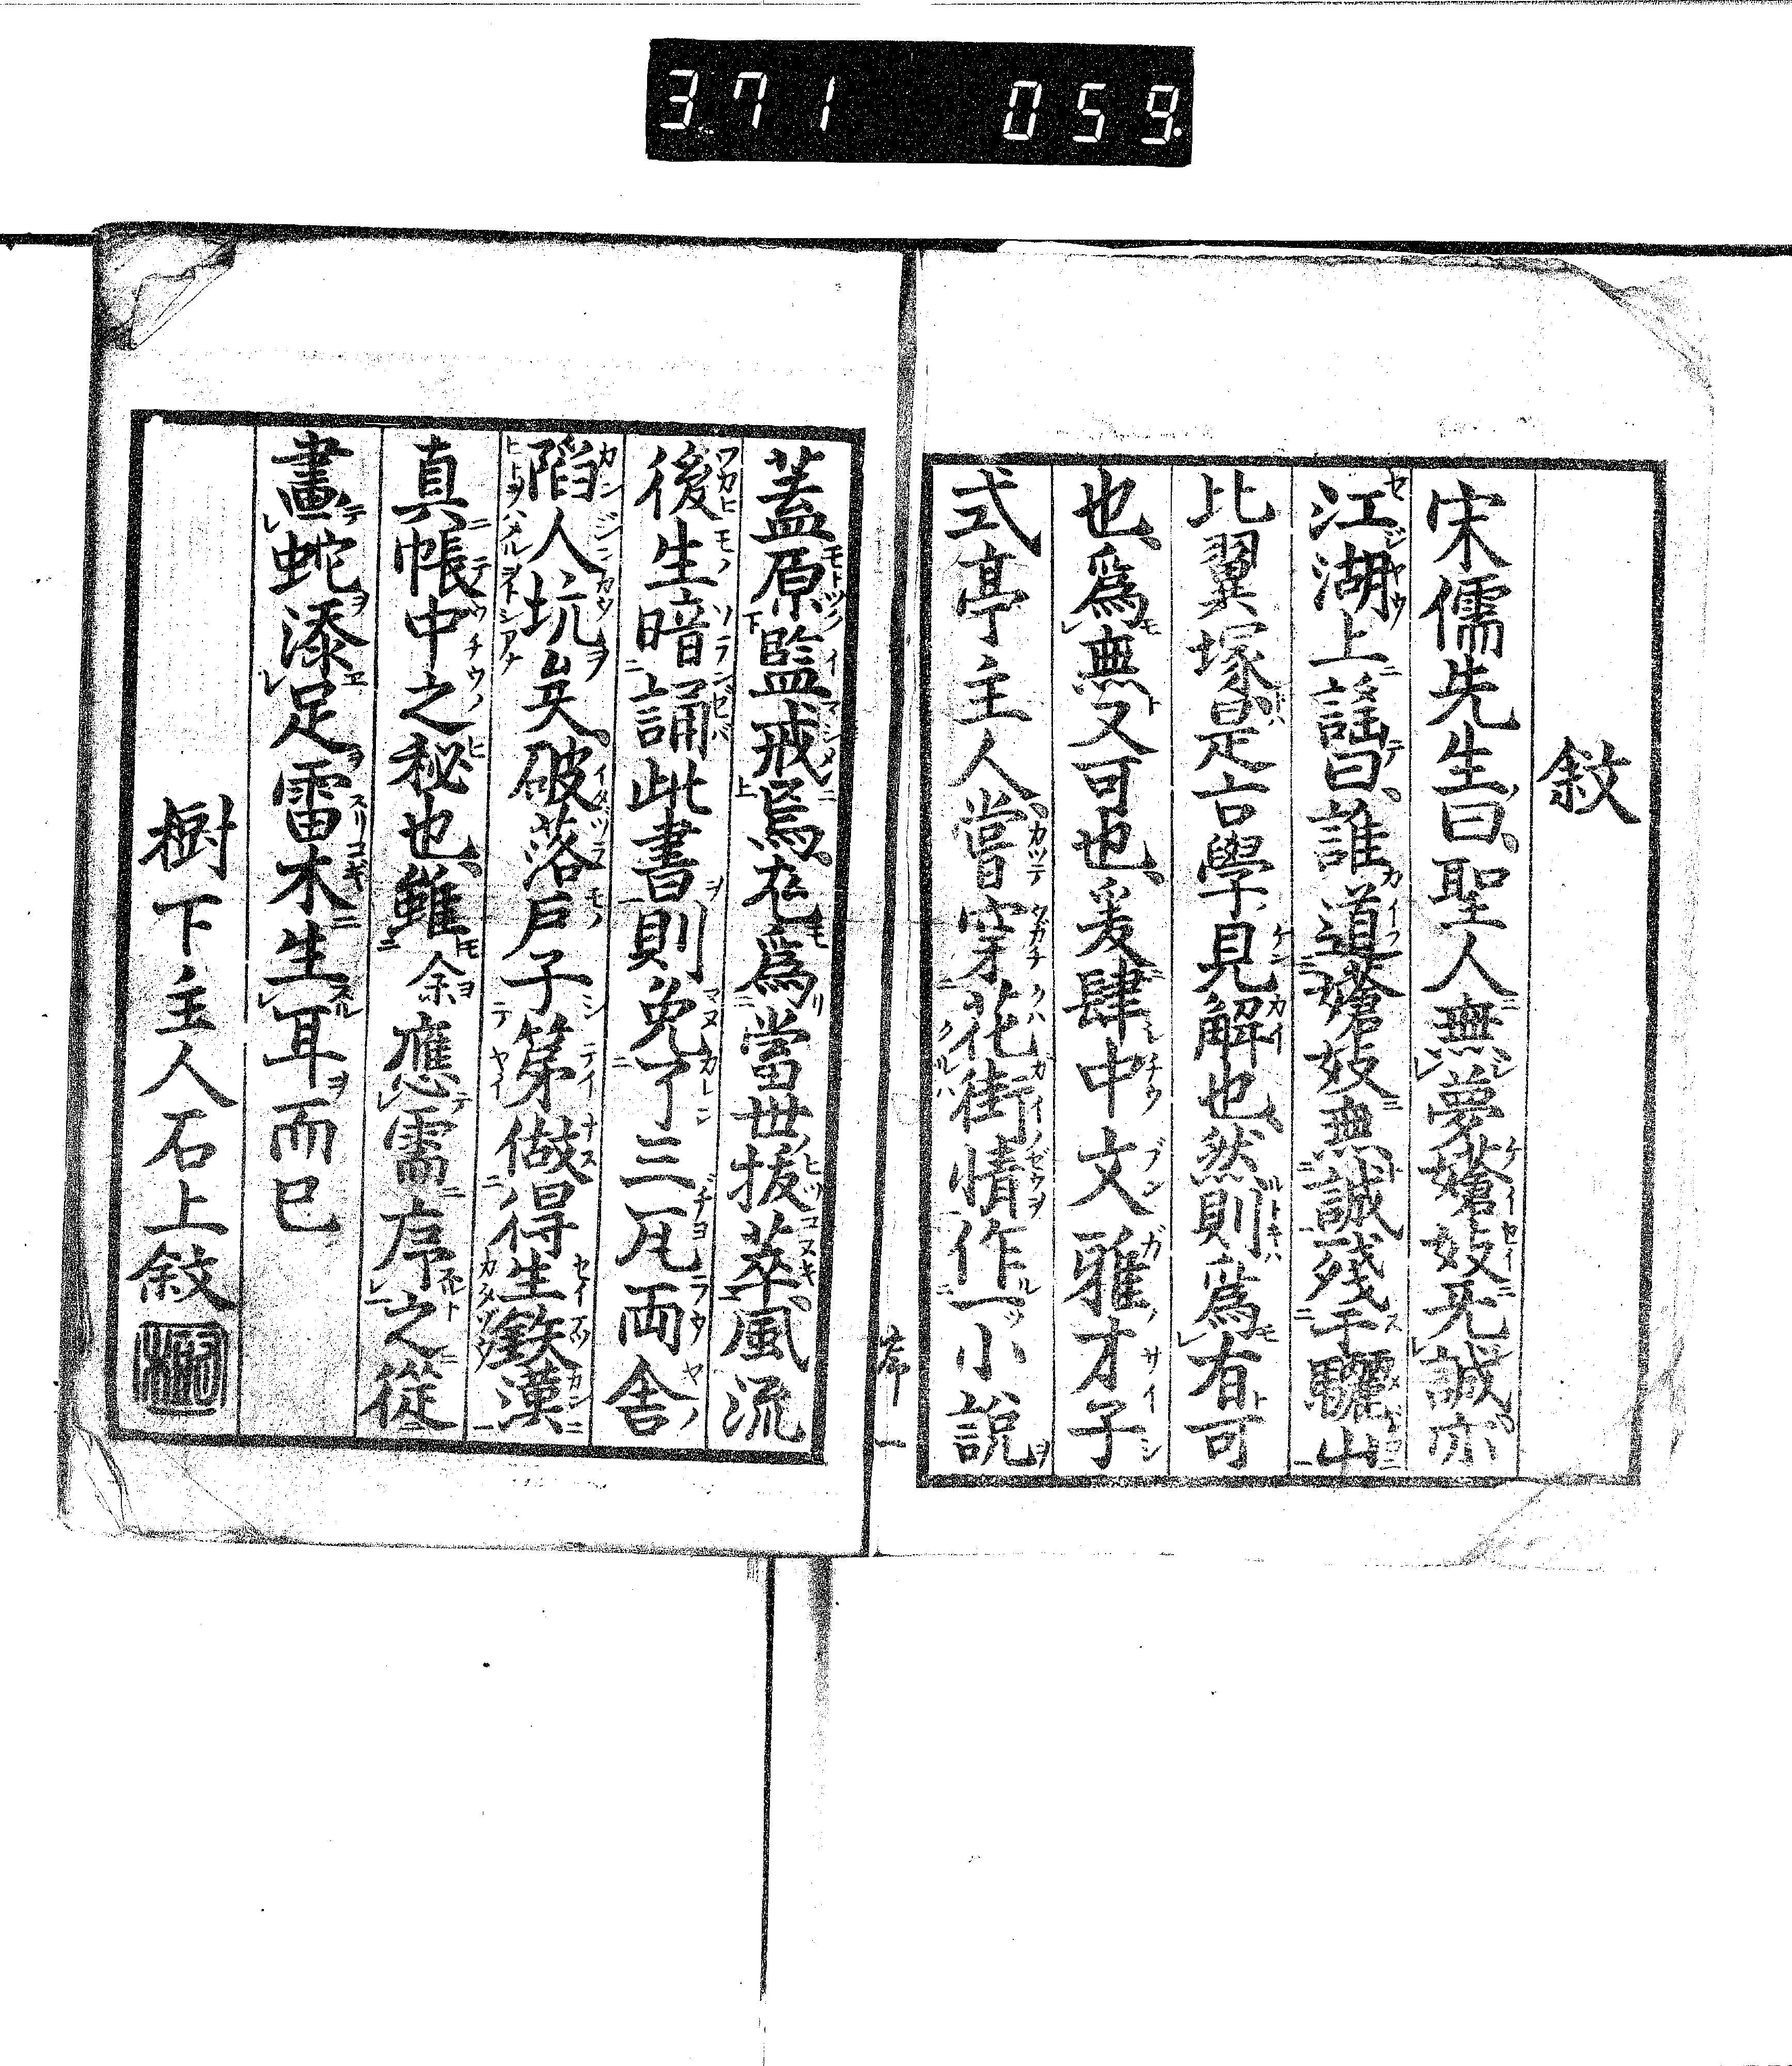 371 059
敘
宋儒先生曰聖人無夢嬙妓無誠亦
江湖上謡曰誰道嬙妓無誠殘乎驪山
比翼塚是言學見解也然則為有可
也為無又可也爰肆中文雅才子
式亭主人嘗穿花街情作一小說
序 一
蓋原監戒焉在為當世拔萃風流
後生暗誦此書則免了三瓦兩舍
陷人坑矣破落戶子第做得生鉄漢
真帳中之秘也雖余應需序之從
畫蛇添足雷木生耳而已
樹下主人石上敘